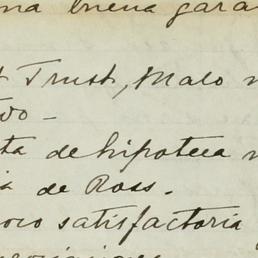 na buena gara
t Trust, Malo
ivo -
ta de hipoteca
ia de Ross.
oco satisfactoria